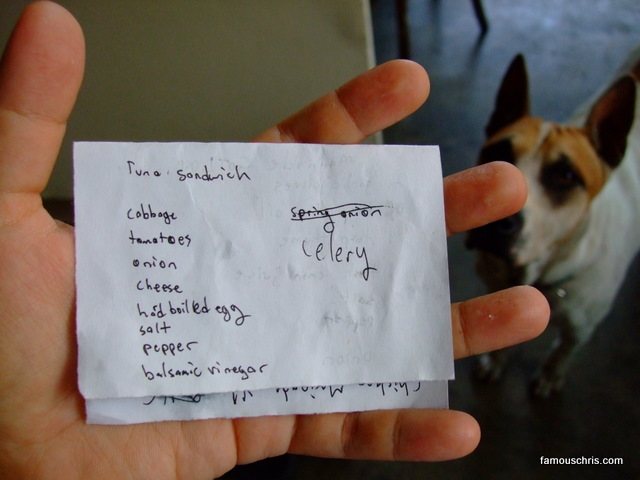 Tuna sandwich
cabbage
tomatoes
onion
cheese
hadboiled egg
salt
pepper
balsamic vinegar
spring onion
Celery
Chicken
famouschris.com